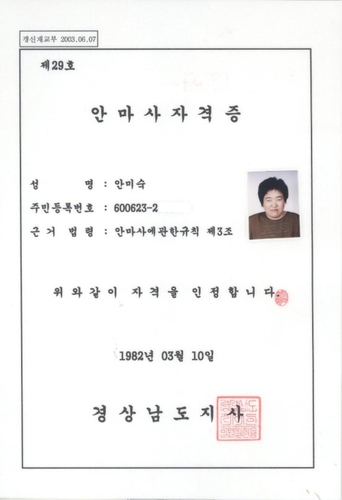 갱신재교부 2003.06.07
제29호
안마사자격증
성 명 : 안미숙
주민등록번호 : 600623-2
근거 법령 : 안마사에관한규칙 제3조
위와같이 자격을 인정합니다.
1982년 03월 10일
경상남도지사